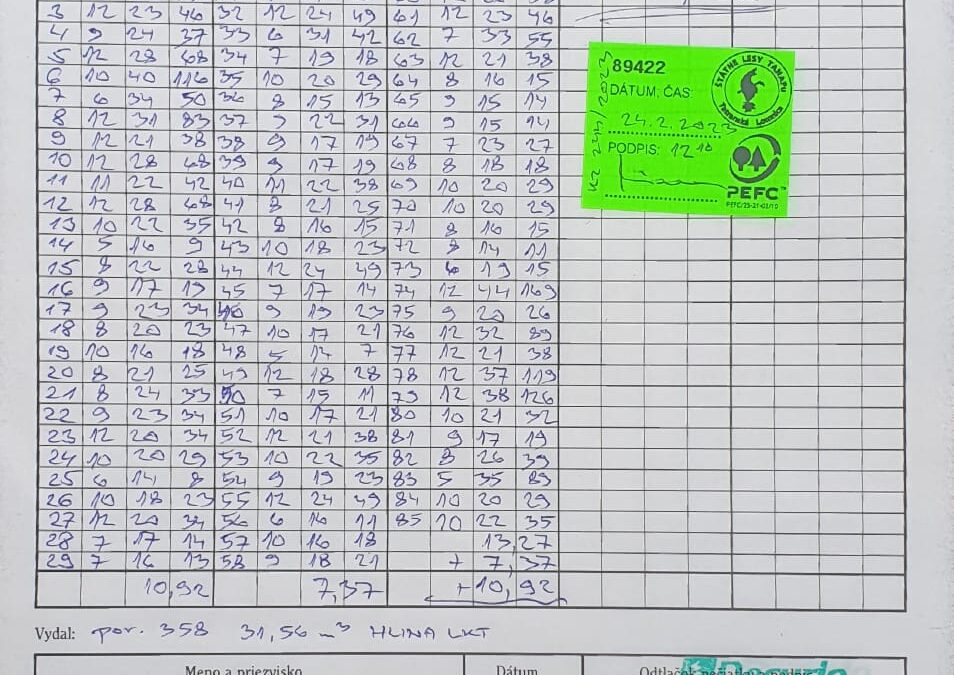 3 12 23 46 32 12 24 49 61 12 23 46
4 9 24 37 33 6 31 42 62 7 33 55
5 12 28 68 34 7 19 18 63 12 21 38
6 10 40 116 35 10 20 29 64 8 16 15
7 6 34 50 36 8 15 13 65 9 15 14
8 12 31 83 37 9 22 31 66 9 15 14
9 12 21 38 38 9 17 19 67 7 23 27
10 12 28 68 39 9 17 19 68 8 18 18
11 11 22 42 40 11 22 38 69 10 20 29
12 12 28 68 41 8 21 25 70 10 20 29
13 10 22 35 42 8 16 15 71 8 16 15
14 5 16 9 43 10 18 23 72 8 14 11
15 8 22 28 44 12 24 49 73 6 19 15
16 9 17 19 45 7 17 14 74 12 44 169
17 9 23 34 46 9 19 23 75 9 20 26
18 8 20 23 47 10 17 21 76 12 32 89
19 10 16 18 48 5 14 7 77 12 21 38
20 8 21 25 49 12 18 28 78 12 37 119
21 8 24 33 50 7 15 11 79 12 38 126
22 9 23 34 51 10 17 21 80 10 21 32
23 12 20 34 52 12 21 38 81 9 17 19
24 10 20 29 53 10 22 35 82 8 26 39
25 6 14 8 54 9 19 23 83 5 35 83
26 10 18 23 55 12 24 49 84 10 20 29
27 12 20 34 56 6 16 11 85 10 22 35
28 7 17 14 57 10 16 18 13,27
29 7 16 13 58 9 18 21 + 7,37
10,92 7,37 +10,92
89422
DÁTUM, ČAS
24.2.2023
PODPIS: 12 10
ŠTÁTNE LESY TANAPU
Tatranská Lomnica
PEFC™
Vydal: por. 358 31,56 m³ HLINA LKT
Meno a priezvisko Dátum